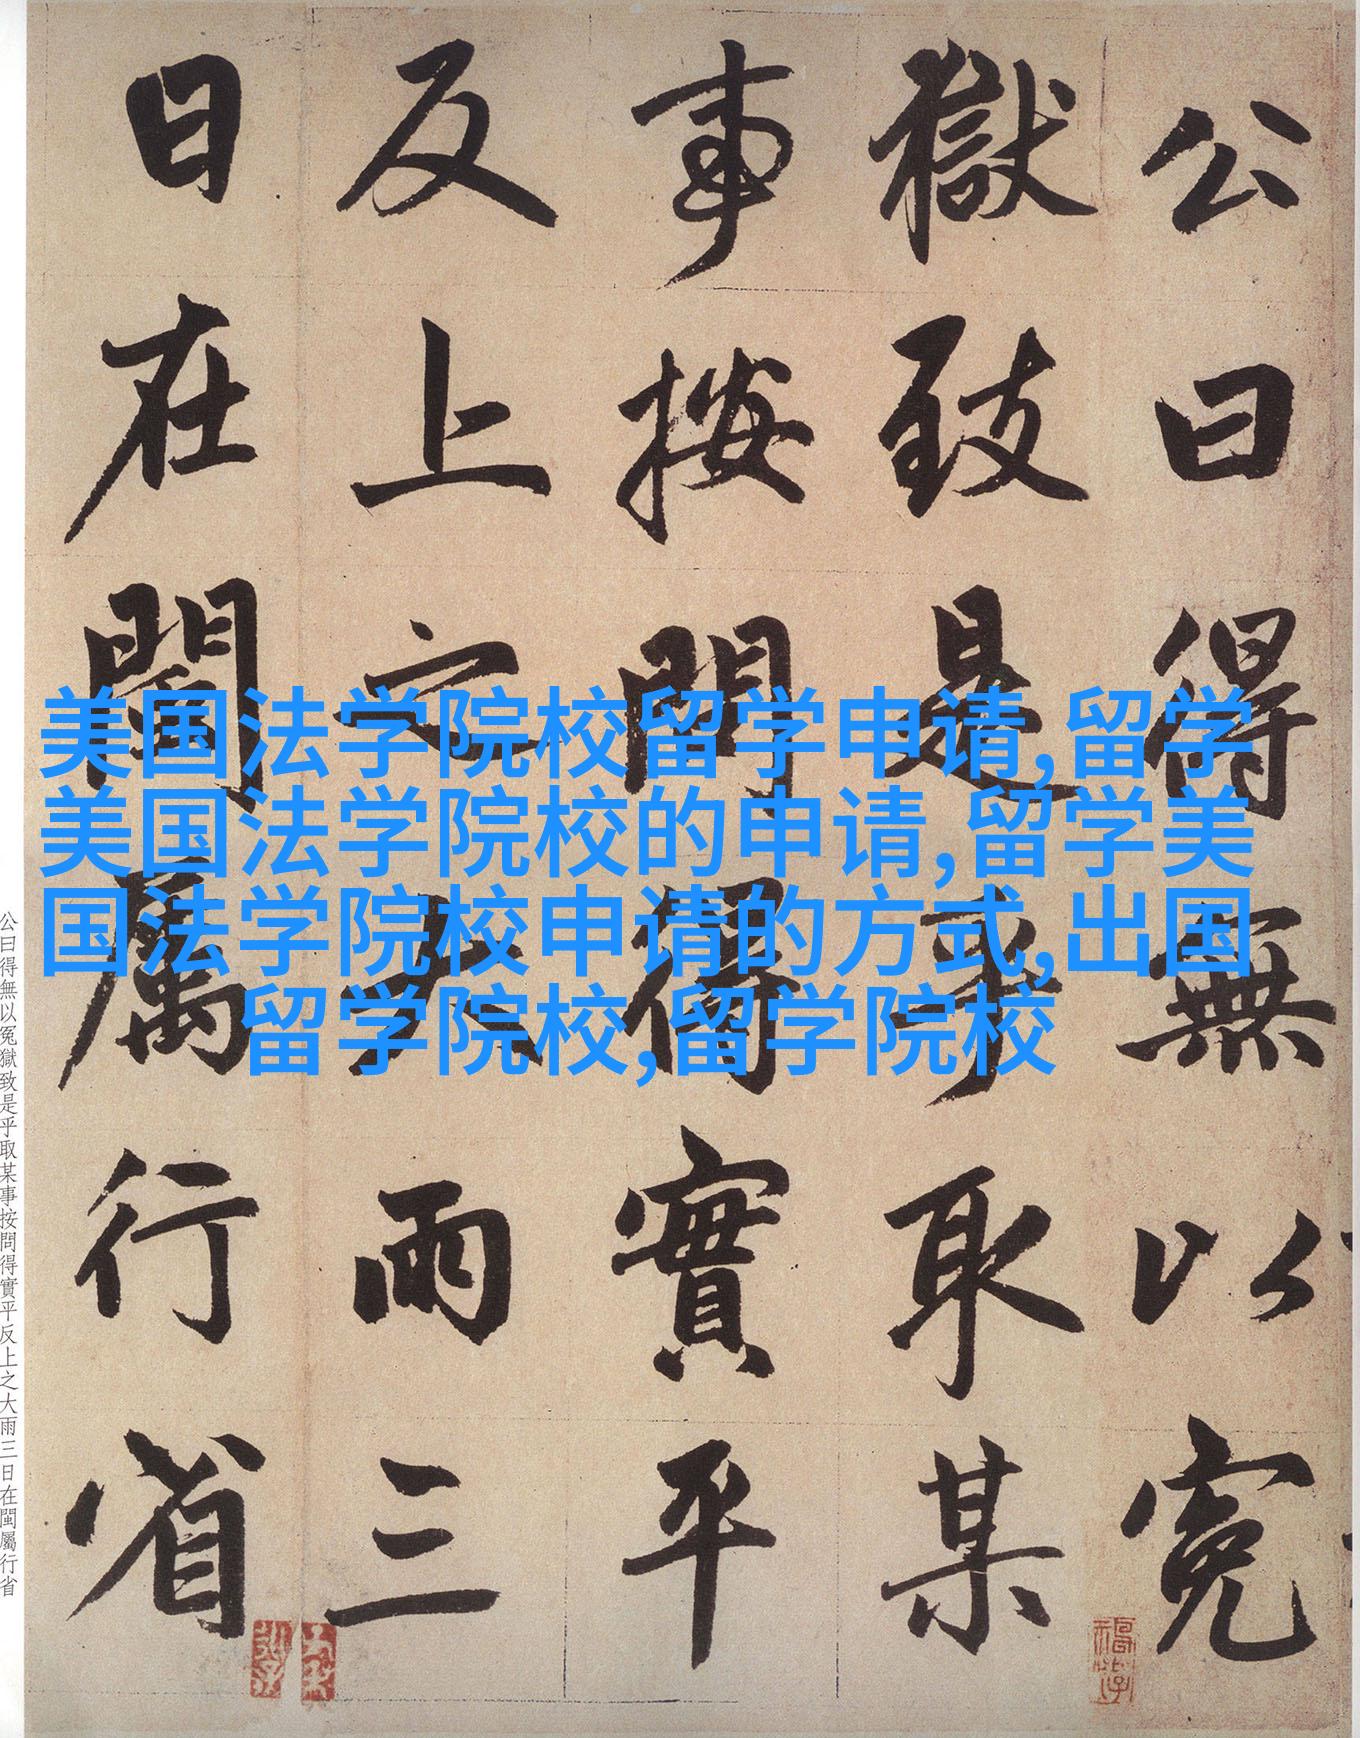 公曰得無以冤
獄致是乎取某
事按問得實平
反上之大雨三
日在閩屬行省
美国法学院校留学申请,留学
美国法学院校的申请,留学美
国法学院校申请的方式,出国
留学院校,留学院校
公曰得無以冤獄致是乎取某事按問得實平反上之大雨三日在閩屬行省